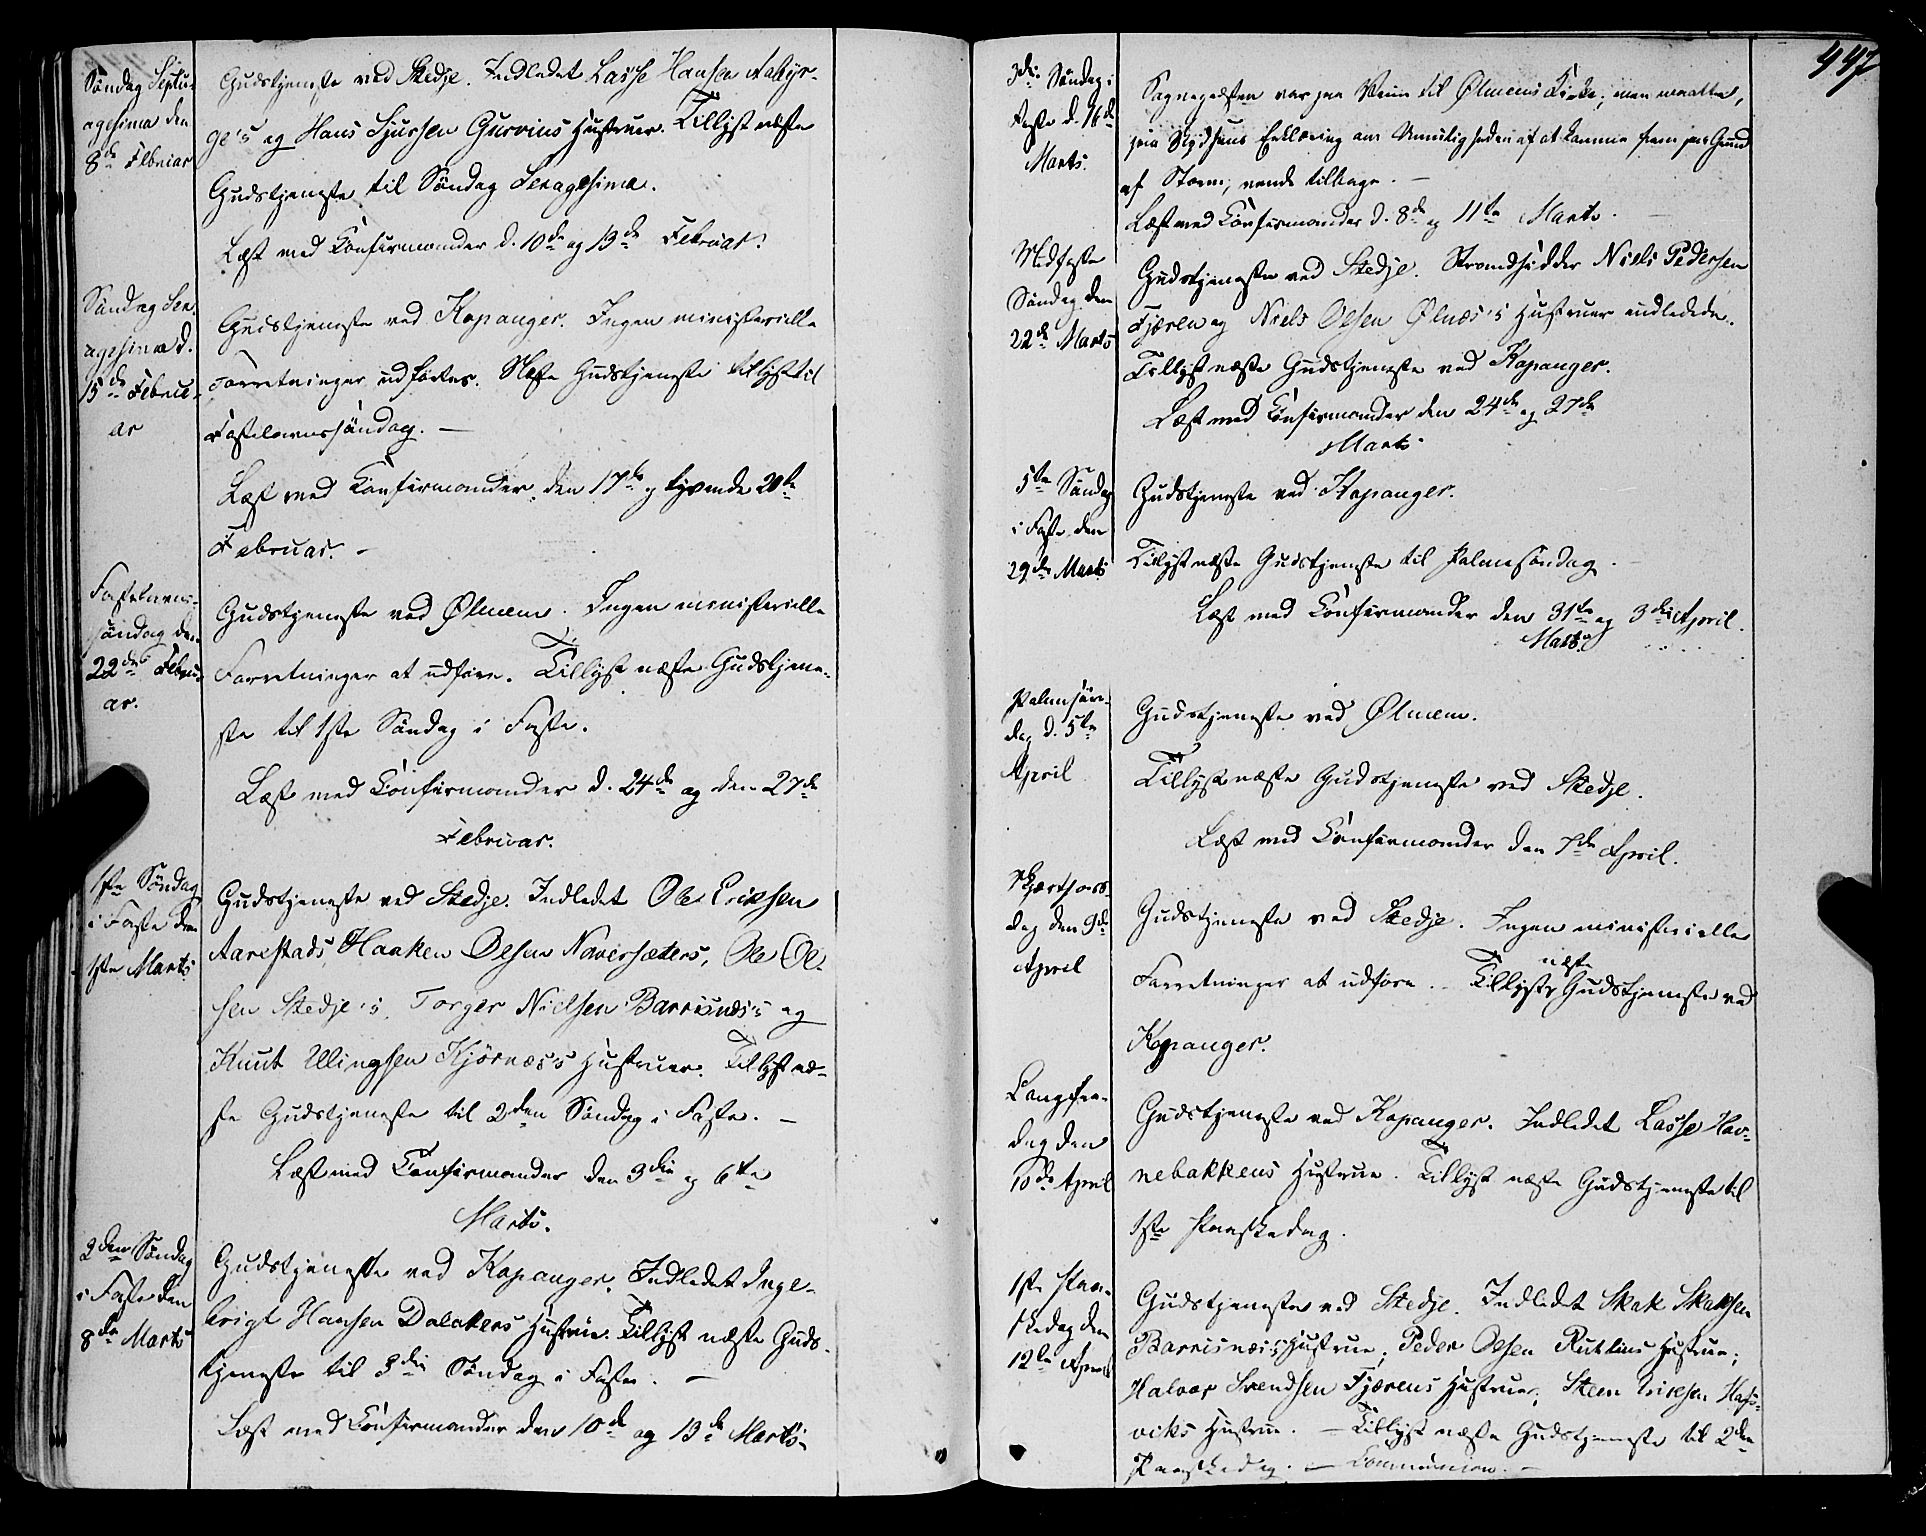 Søndag Septu-
agesima den
8de Februar
Gudstjeneste ved Stedje. Indledet Lasse Hansen
ge's og Hans Sjursen Gurvins Hustruer. Tillyst næste
Gudstjeneste til Søndag Sexagesima.
Læst med Confirmander d. 10de og 13de Februar.
Søndag Sex-
agesima d.
15de Febru-
ar
Gudstjeneste ved Kapanger. Ingen ministerielle
Forretninger udførtes. Næste Gudstjeneste tillyst til
Fastelavnssøndag. —
Læst med Confirmander den 17de og tyvende 20de
Februar. –
Fastelavns-
søndag den
22de Febru-
ar.
Gudstjeneste ved Ølmem. Ingen ministerielle
Forretninger at udføre. Tillyst næste Gudstjene-
ste til 1ste Søndag i Faste.
Læst med Confirmander d. 24de og den 27de
Februar.
1ste Søndag
i Faste den
1ste Marts
Gudstjeneste ved Stedje. Indledet Ole Eriksen
Aarestads, Haaken Olsen Naversæters, Ole Ol-
sen Stedje's, Torger Nielsen Barsnæs's og
Knut Ellingsen Kjørnæs's Hustruer. Tillyst næ-
ste Gudstjeneste til 2den Søndag i Faste. —
Læst med Confirmander den 3die og 6te
Marts.
2den Søndag
i Faste den
8de Marts
Gudstjeneste ved Kapanger. Indledet Inge-
brigt Hansen Dalakers Hustrue. Tillyst næste Guds-
tjeneste til 3die Søndag i Faste. —
Læst med Confirmander den 10de og 13de Marts.
447
3die Søndag i
Faste d. 16de
Marts.
Sognepræsten var paa Veien til Ølmems Kirke, men maatte,
paa Skydsens Erklæring om Umuligheden af at komme frem paa Grund
af Storm, vende tilbage. —
Læst med Confirmander d. 8de og 11te Marts.
Midfaste
Søndag den
22de Marts
Gudstjeneste ved Stedje. Strandsidder Niels Pedersen
Fjæren og Niels Olsen Ølnæs's Hustruer indledede.
Tillyst næste Gudstjeneste ved Kapanger.
Læst med Confirmander den 24de og 27de
Marts
5te Søndag
i Faste den
29de Marts
Gudstjeneste ved Kapanger.
Tillyst næste Gudstjeneste til Palmesøndag. —
Læst med Confirmander den 31te og 3die April.
Marts
Palmesøn-
dag d. 5te
April
Gudstjeneste ved Ølmem.
Tillyst næste Gudstjeneste ved Stedje.
Læst med Confirmander den 7de April.
Skjærtors-
dag den 9de
April
Gudstjeneste ved Stedje. Ingen ministerielle
næste
Forretninger at udføre. Tillyst Gudstjeneste ved
Kapanger.
Langfre-
dag den
10de April
Gudstjeneste ved Kapanger. Indledet Lasse Hav-
nebakkens Hustrue. Tillyst næste Gudstjeneste til
1ste Paaskedag.
1ste Paa-
skedag den
12te April
Gudstjeneste ved Stedje. Indledet Skak Skaksen
Barsnæs's Hustrue, Peder Olsen Rutlins Hustrue;
Halvor Svendsen Fjærens Hustrue, Steen Eriksen Hafs-
viks Hustrue. — Tillyst næste Gudstjeneste til 2den
Paaskedag. — Communion. —